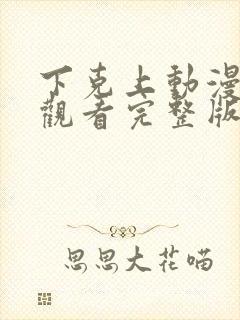 下克上動漫
觀看完整版
思思大花喵